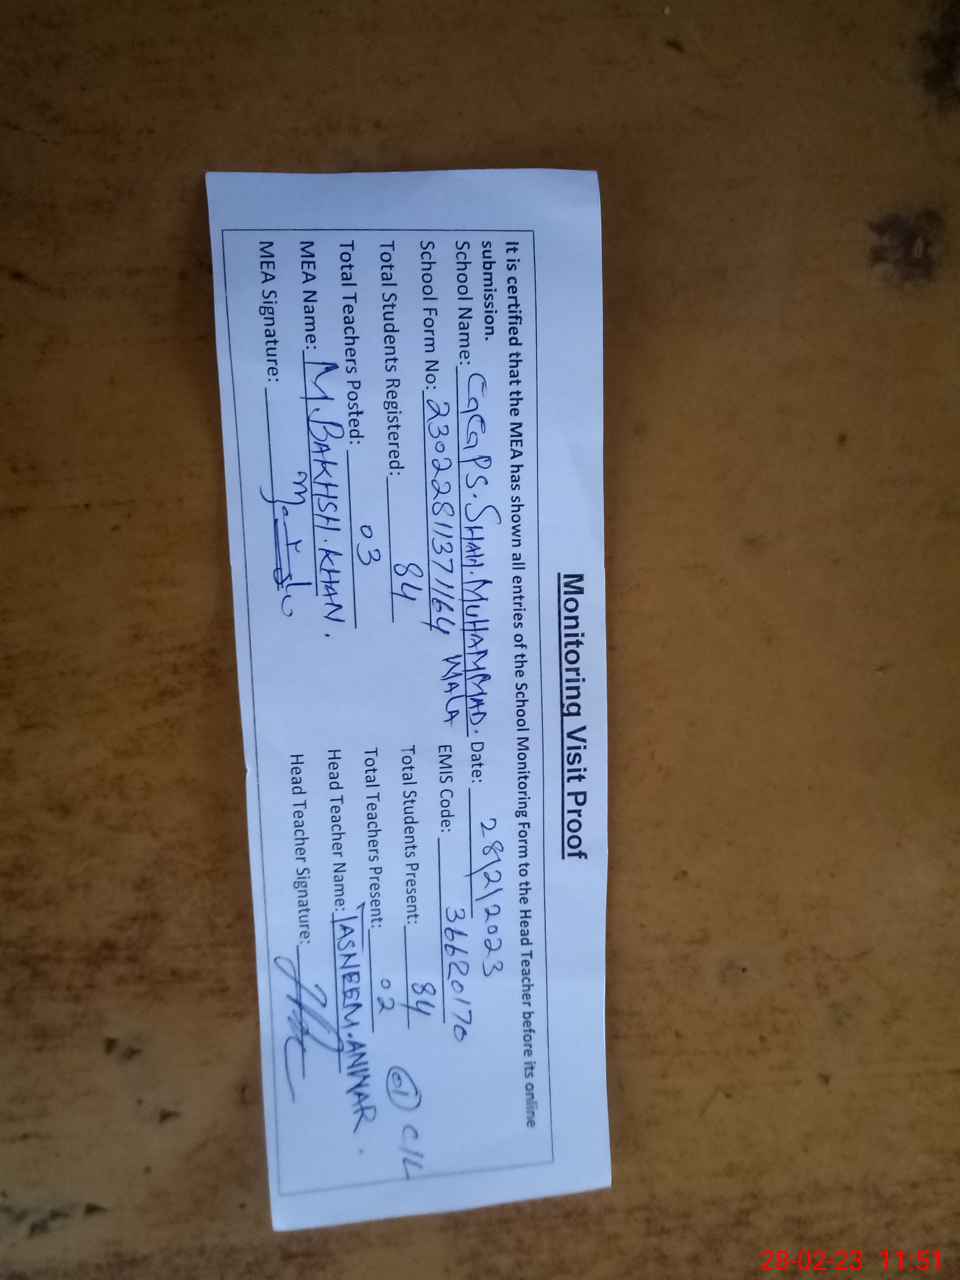 Monitoring Visit Proof
It is certified that the MEA has shown all entries of the School Monitoring Form to the Head Teacher before its online
submission.
School Name: GGPS. SHAH. MUHAMMAD. WALA Date: 28/2/2023
School Form No: 23022811371164 EMIS Code: 36620170
Total Students Registered: 84 Total Students Present: 84
Total Teachers Posted: 03 Total Teachers Present: 02 01 C/L
MEA Name: M. BAKHSH. KHAN. Head Teacher Name: TASNEEM. ANWAR.
MEA Signature: Head Teacher Signature:
28-02-23 11:51